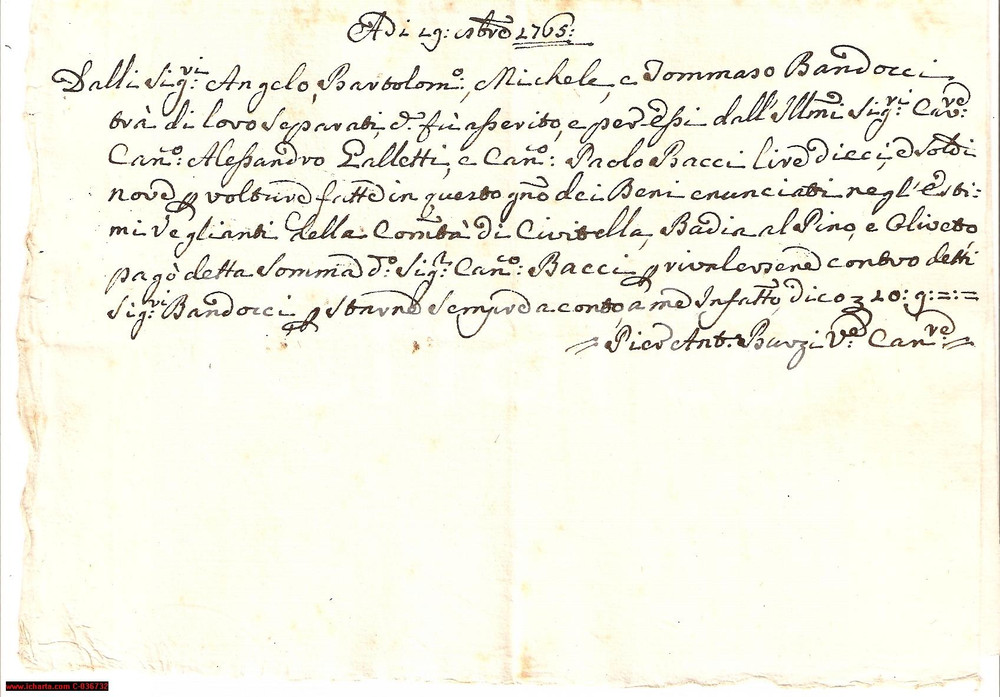 Adi 19: 8bre 1765:
Dalli Sig:ri Angelo, Bartolom:o, Michele, e Tommaso Bandocci
trà di loro Separati, c. fù asserito, e per essi dall' Illmi Sig:ri Cav:re
Can:co Alessandro Galletti, e Can:co Paolo Bacci lire dieci, e soldi
nove p volture fatte in questo gno dei Beni enunciati negl' Esti:
mi Veglianti della Comtà di Civitella, Badia al Pino, e Oliveto
pagò detta Somma d:o Sig:r Can:co Bacci p rivalersene contro detti
Sig:ri Bandocci, p starne Sempre a conto, a me Infatto, dico 10: 9: =:=
Pier Ant: Burzi V:e Can:re
www.icharta.com C-036732